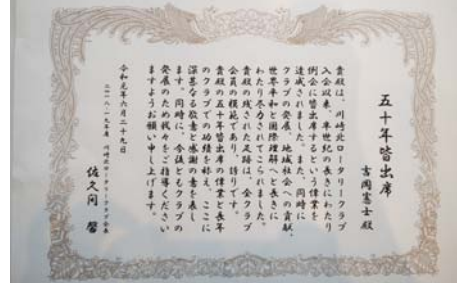 五十年皆出席
吉岡憲士殿
貴殿は、川崎北ロータリークラブ
入会以来、半世紀の長きにわたり
例会に皆出席するという偉業を
達成されました。また、同時に
クラブの発展、地域社会への貢献、
世界平和と国際理解へと長きに
わたり尽力されてこられました。
貴殿の残された足跡は、全クラブ
会員の模範であり、誇りです。
貴殿の五十年皆出席の偉業と長年
のクラブでの功績を称え、ここに
深甚なる敬意と感謝の意を表し
ます。同時に、今後ともクラブの
発展のため我々をご指導ください
ますようお願い申し上げます。
令和元年六月二十九日
二〇一八-一九年度 川崎北ロータリークラブ会長
佐久間 馨